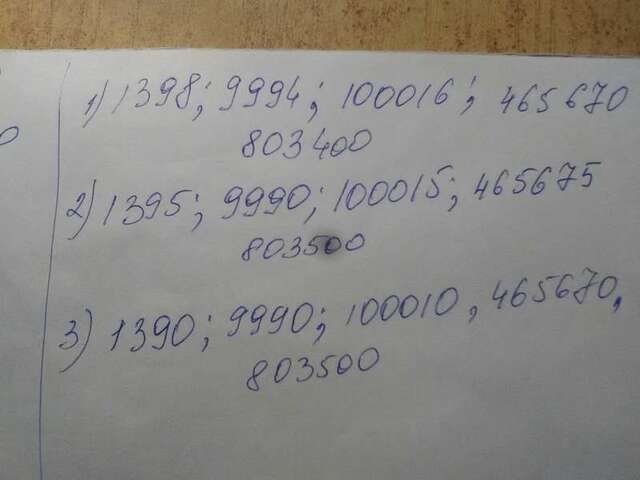 1) 1398; 9994; 100016; 465670
803400
2) 1395; 9990; 100015; 465675
803500
3) 1390; 9990; 100010, 465670,
803500